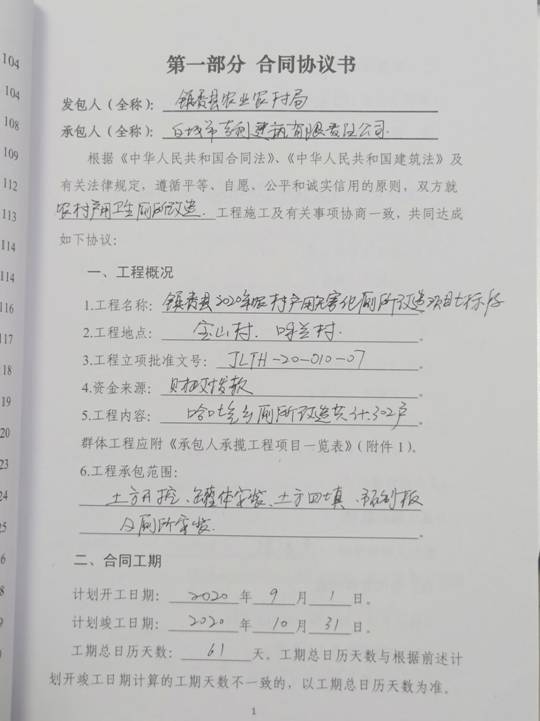 104
104
108
109
112
113
114
114
116
117
18
19
20
23
24
25
6
第一部分 合同协议书
发包人（全称）：镇赉县农业农村局
承包人（全称）：白城市吉利建筑有限责任公司
根据《中华人民共和国合同法》、《中华人民共和国建筑法》及
有关法律规定，遵循平等、自愿、公平和诚实信用的原则，双方就
农村户用卫生厕所改造 工程施工及有关事项协商一致，共同达成
如下协议：
一、工程概况
1.工程名称：镇赉县2020年农村户用无害化厕所改造项目七标段
2.工程地点：宝山村、呼兰村。
3.工程立项批准文号：JLTH-20-010-07。
4.资金来源：财政拨款。
5.工程内容：哈吐气乡厕所改造共计302户。
群体工程应附《承包人承揽工程项目一览表》（附件 1）。
6.工程承包范围：
土方开挖、罐体安装、土方回填、板
及厕所安装。
二、合同工期
计划开工日期：2020年9月1日。
计划竣工日期：2020年10月31日。
工期总日历天数：61天。工期总日历天数与根据前述计
划开竣工日期计算的工期天数不一致的，以工期总日历天数为准。
1